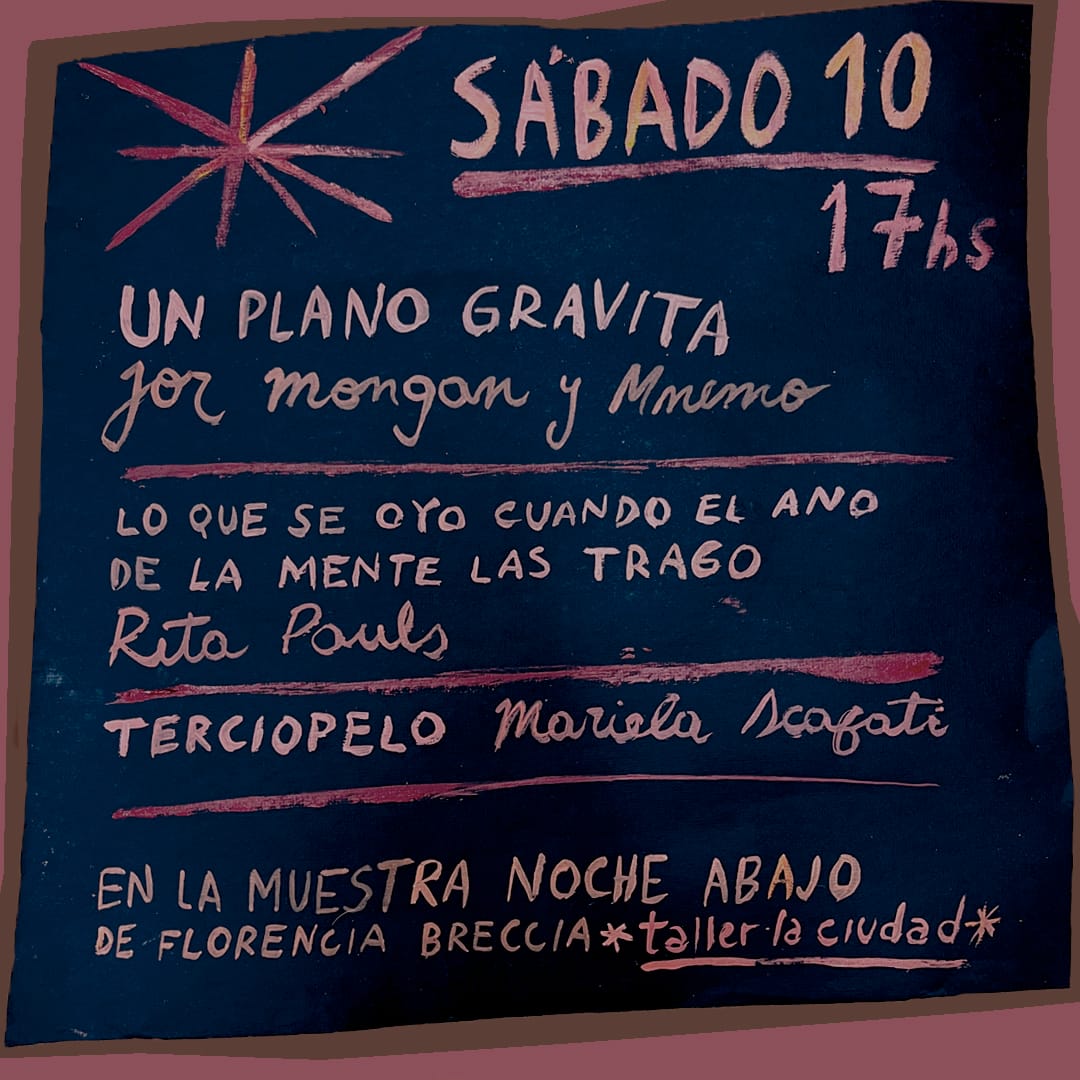 SÁBADO 10
17hs
UN PLANO GRAVITA
Jor Mongan y Mnemo
LO QUE SE OYO CUANDO EL ANO
DE LA MENTE LAS TRAGO
Rita Pauls
TERCIOPELO Mariela Scafati
EN LA MUESTRA NOCHE ABAJO
DE FLORENCIA BRECCIA * taller la ciudad *